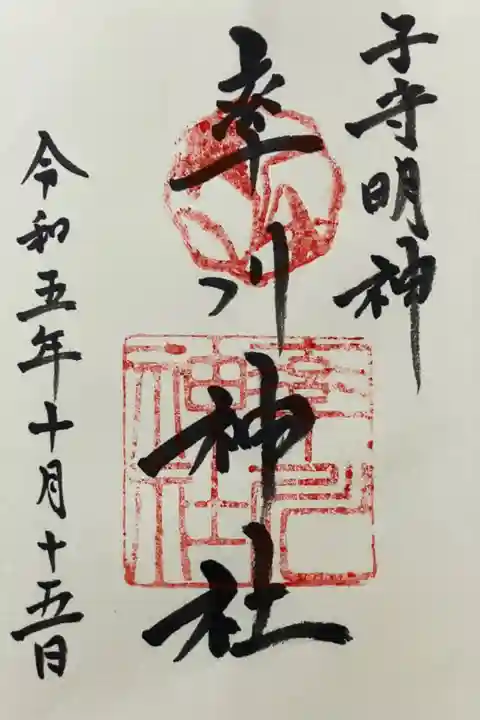 子守明神
率川神社
令和五年十月十五日